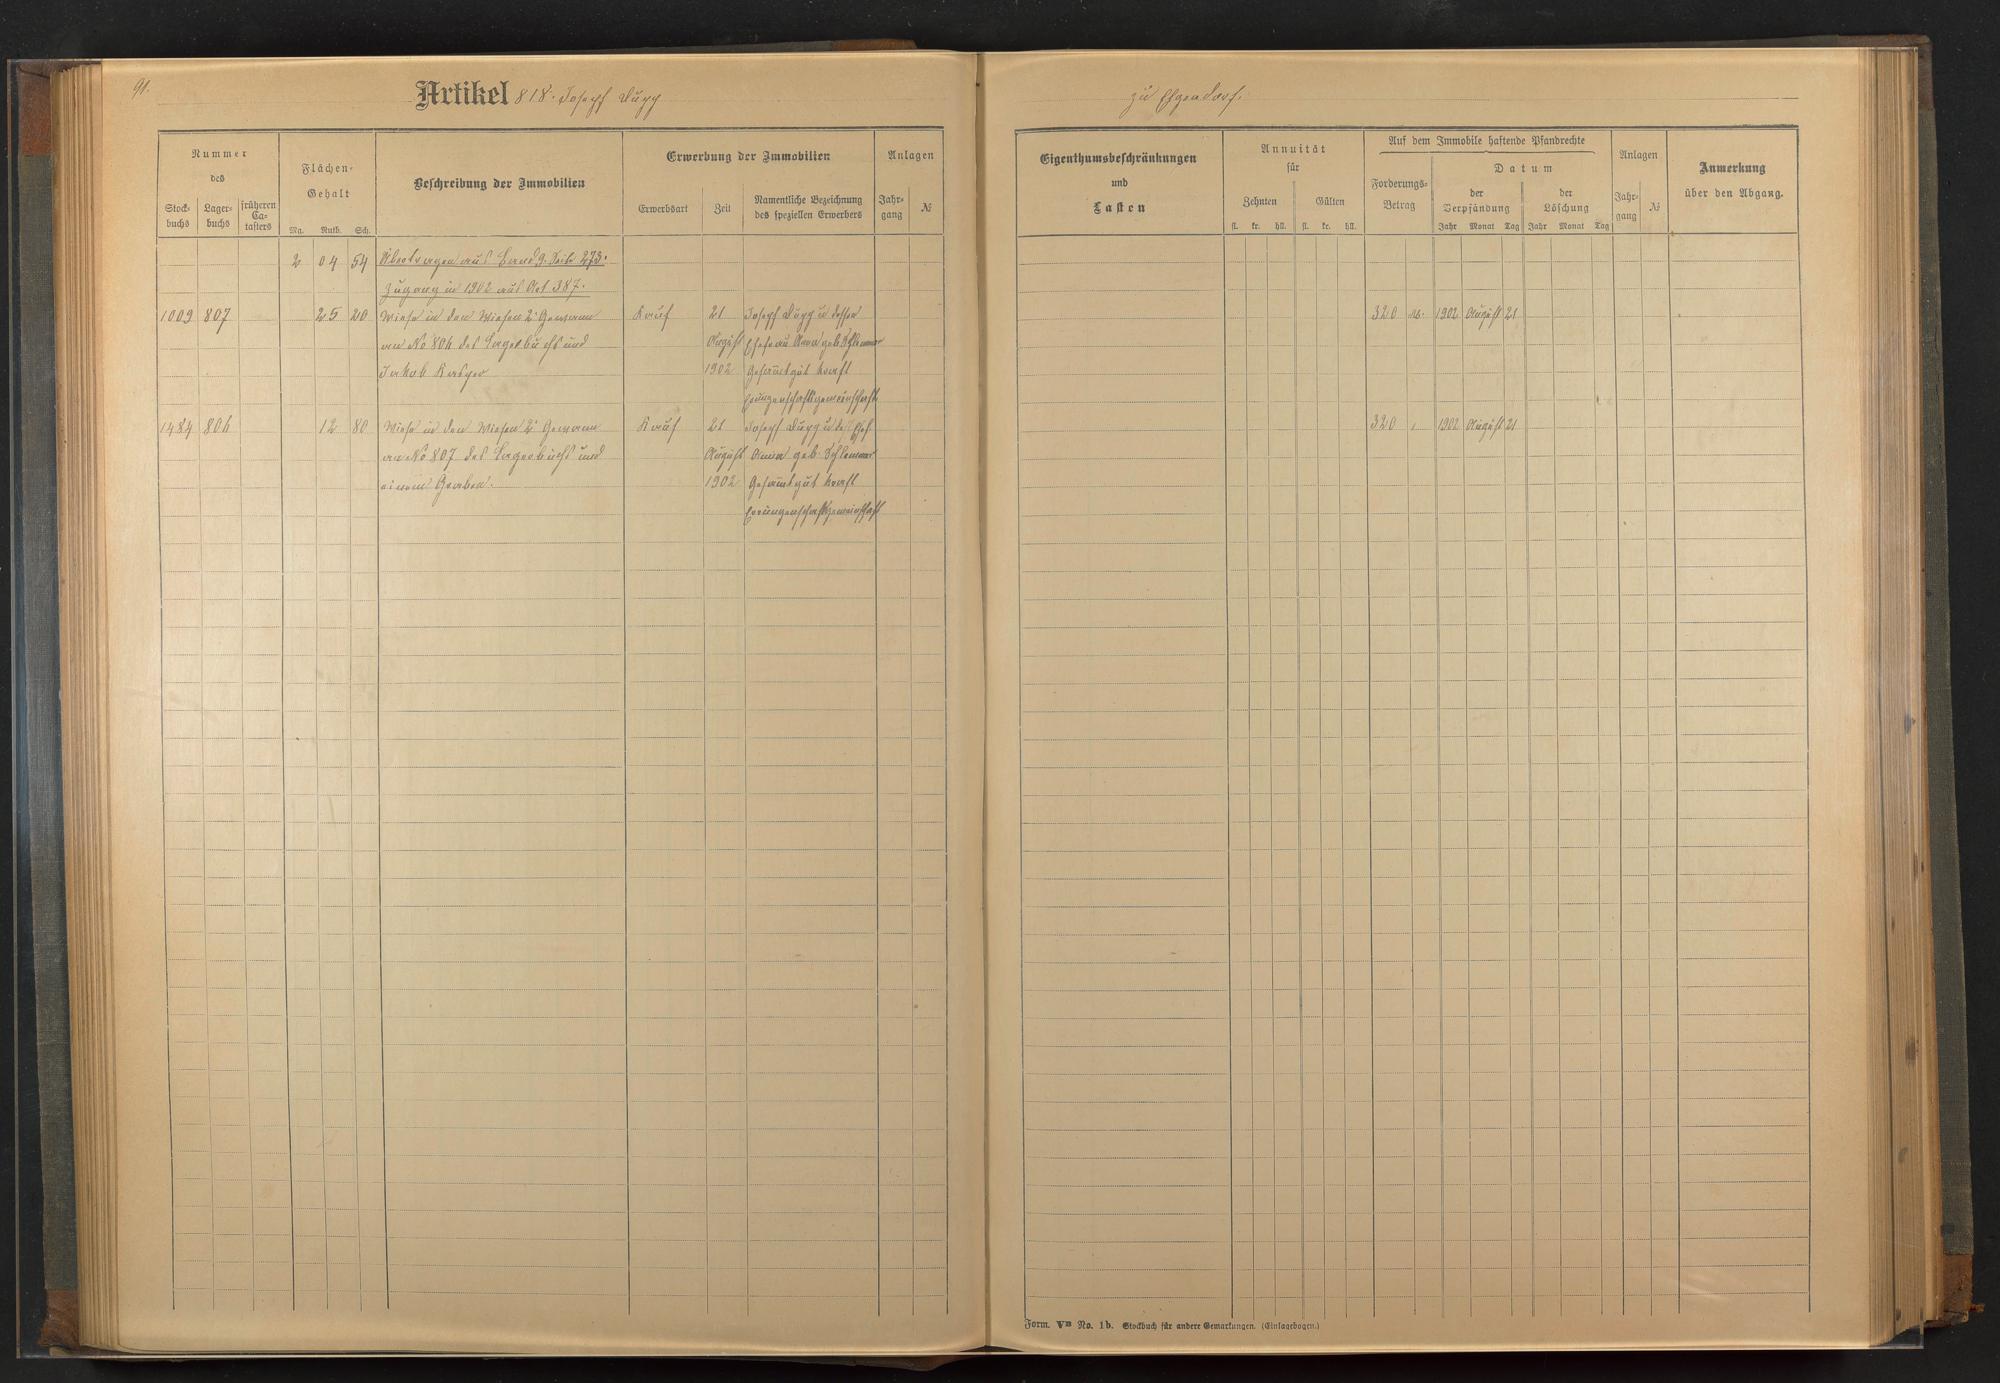 91.
Artikel 818. Joseph Dupp
zu Elgendorf.
Nummer
des
Stock-
buchs
Lager-
buchs
früheren
Ca-
tasters
Flächen-
Gehalt
Mg. Ruth. Sch.
Beschreibung der Immobilien
Erwerbung der Immobilien
Erwerbsart
Zeit
Namentliche Bezeichnung
des speziellen Erwerbers
Anlagen
Jahr-
gang
№
2 04 54 Übertragen aus Band 9. Seite 273.
Zugang in 1902 aus Art 387.
1009 807 25 20 Wiese in den Wiesen 2r Gewann Kauf 21 Joseph Dupp u dessen
an No 806 des Lagerbuchs und August Ehefrau Anna geb. Schlemmer
Jakob Kasper 1902 Gesamtgut kraft
Errungenschaftsgemeinschaft
1484 806 12 80 Wiese in den Wiesen 2r Gewann Kauf 21 Joseph Dupp u des Ehef.
an No 807 des Lagerbuchs und August Anna geb. Schlemmer
einem Graben. 1902 Gesamtgut kraft
Errungenschaftsgemeinschaft
Eigenthumsbeschränkungen
und
Lasten
Annuität
für
Zehnten
Gülten
fl. kr. hll. fl. kr. hll.
Auf dem Immobile haftende Pfandrechte
Forderungs-
Betrag
Datum
der
Verpfändung
der
Löschung
Jahr Monat Tag Jahr Monat Tag
Anlagen
Jahr-
gang
№
Anmerkung
über den Abgang.
320 M. 1902 August 21
320 1902 August 21
Form. VB No. 1b. Stockbuch für andere Gemarkungen. (Einlagebogen.)